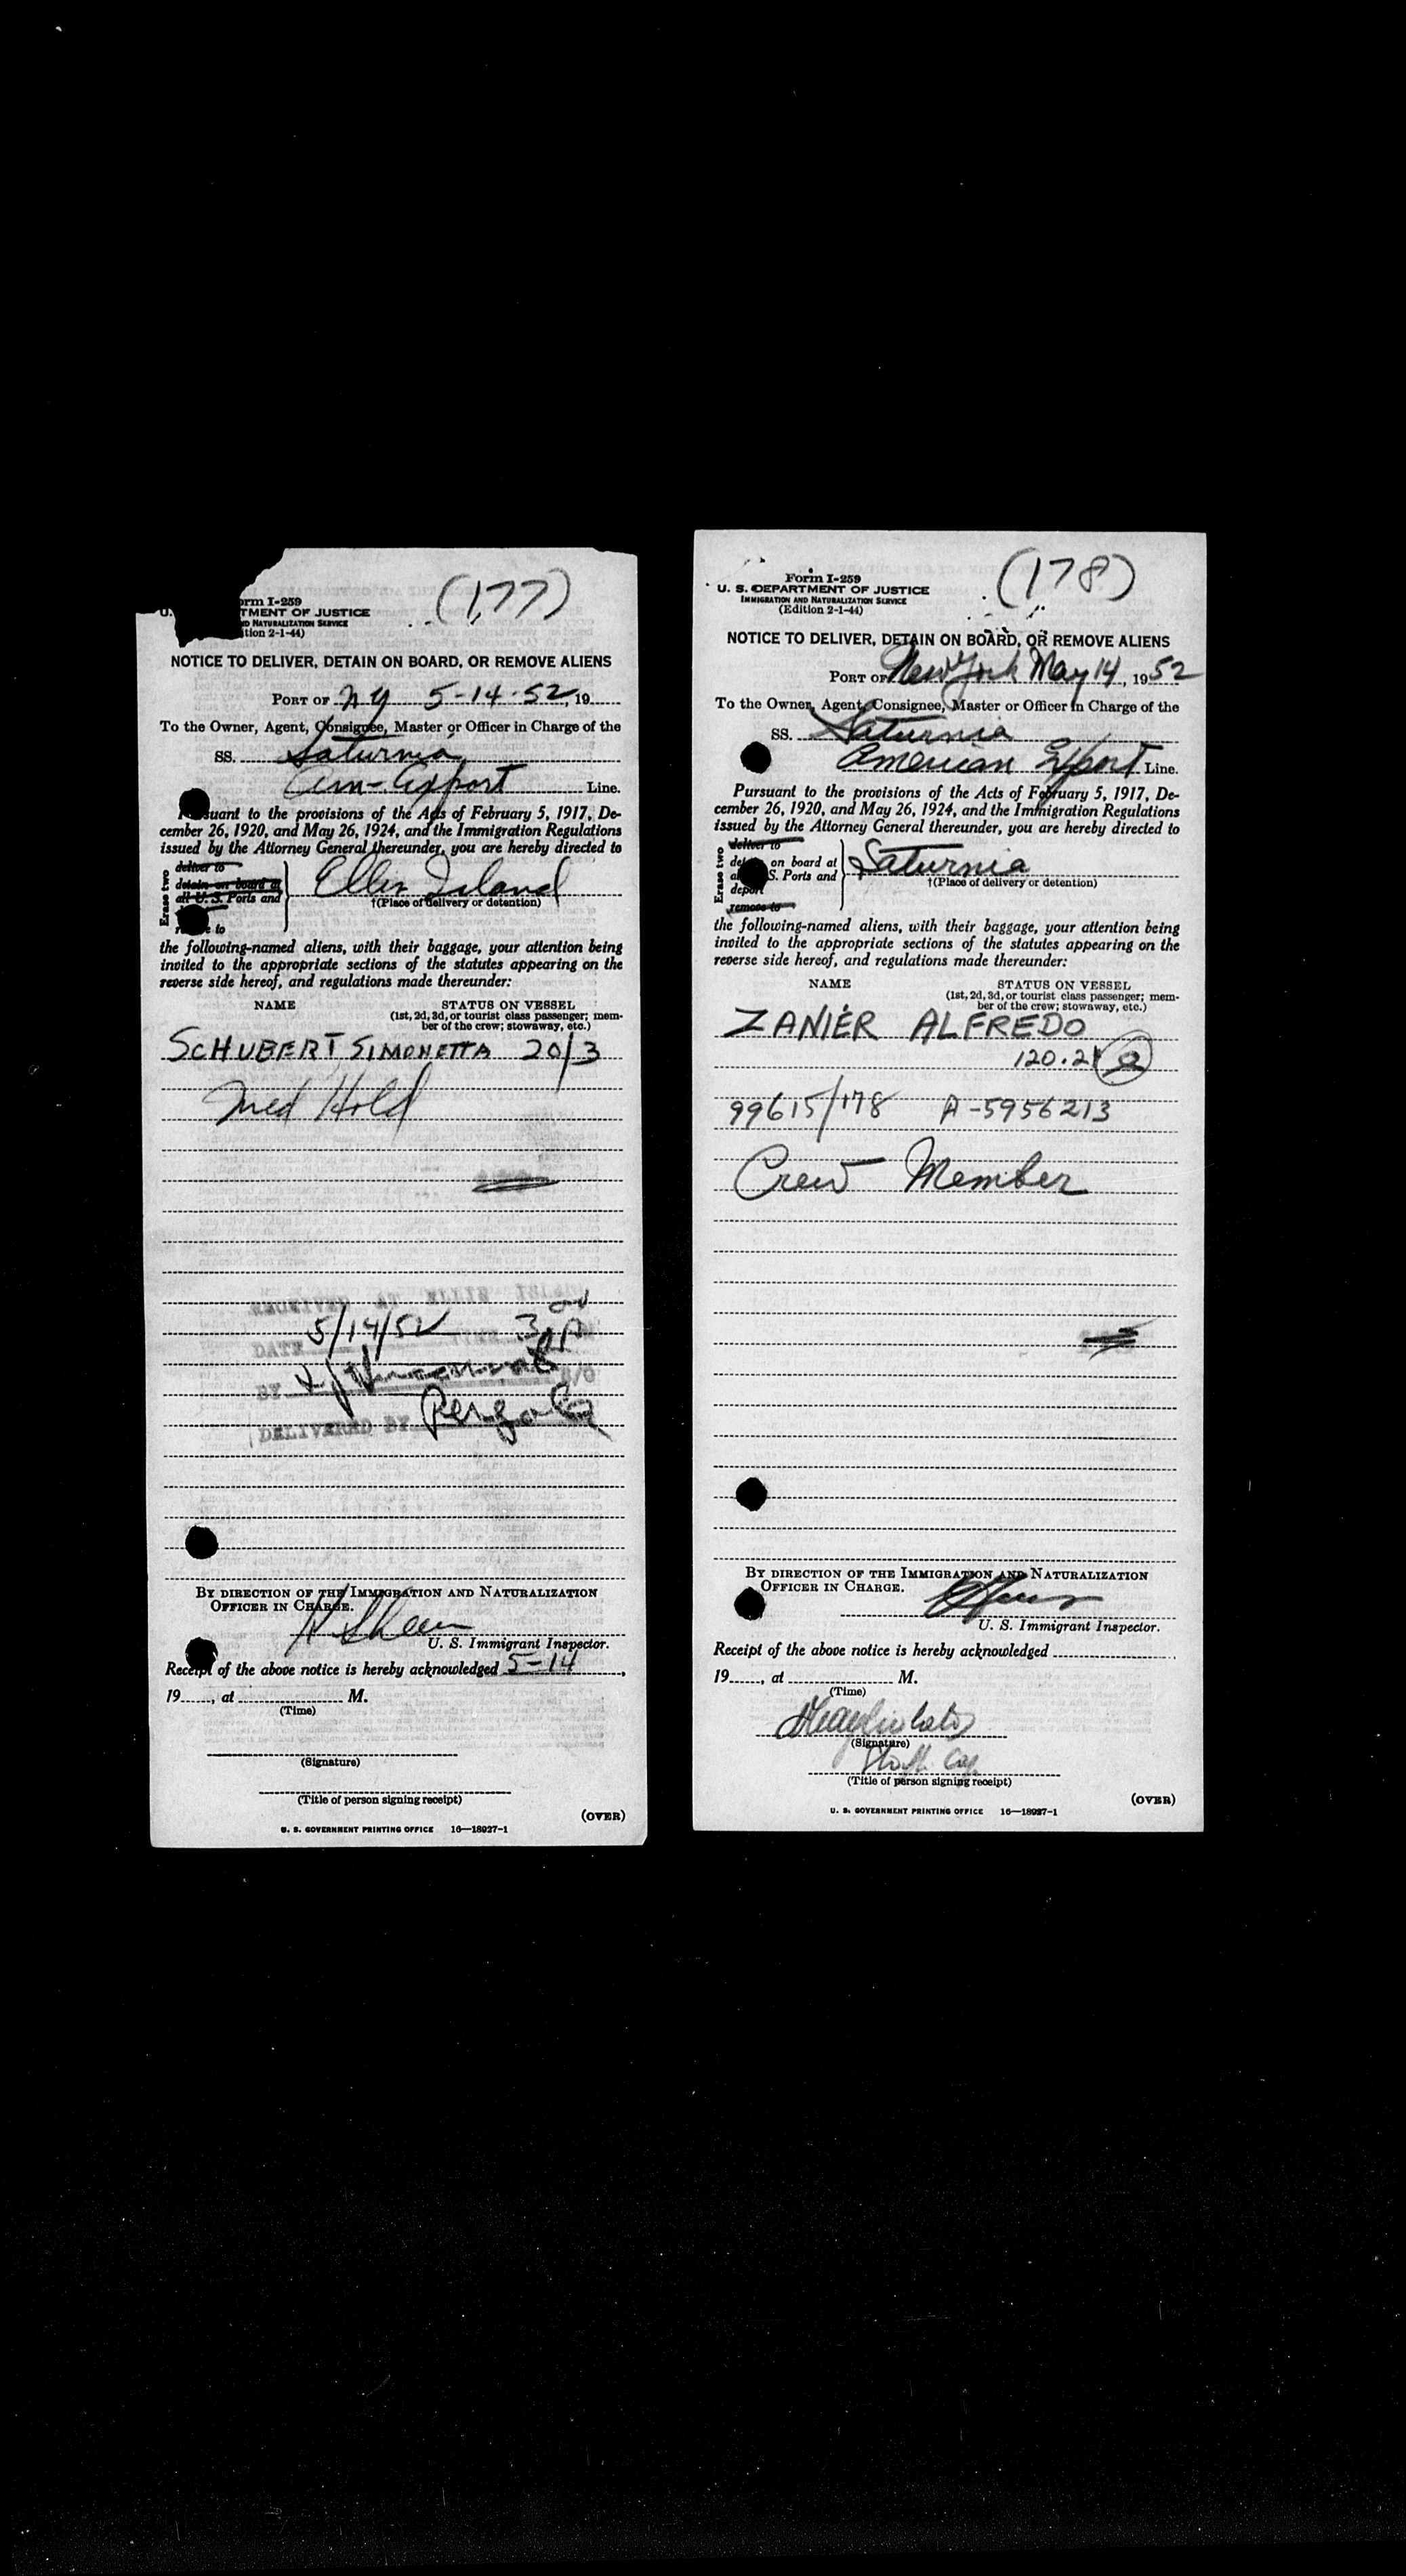 (177)
rm I-259
U. TMENT OF JUSTICE
D NATURALIZATION SERVICE
ition 2-1-44)
NOTICE TO DELIVER, DETAIN ON BOARD, OR REMOVE ALIENS
PORT OF N Y 5-14-52, 19
To the Owner, Agent, Consignee, Master or Officer in Charge of the
SS. Saturnia
Am-Export Line.
suant to the provisions of the Acts of February 5, 1917, De-
cember 26, 1920, and May 26, 1924, and the Immigration Regulations
issued by the Attorney General thereunder, you are hereby directed to
Erase two
deliver to
detain on board at
all U. S. Ports and
r e to
Ellis Island
†(Place of delivery or detention)
the following-named aliens, with their baggage, your attention being
invited to the appropriate sections of the statutes appearing on the
reverse side hereof, and regulations made thereunder:
NAME STATUS ON VESSEL
(1st, 2d, 3d, or tourist class passenger; mem-
ber of the crew; stowaway, etc.)
SCHUBERT SIMONETTA 20/3
Med Hold
RECEIVED AT ELLIS ISLAND
DATE 5/14/52
BY
DELIVERED BY
BY DIRECTION OF THE IMMIGRATION AND NATURALIZATION
OFFICER IN CHARGE.
U. S. Immigrant Inspector.
Receipt of the above notice is hereby acknowledged 5-14,
19, at M.
(Time)
(Signature)
(Title of person signing receipt)
(OVER)
U. S. GOVERNMENT PRINTING OFFICE 16—18927-1
(178)
Form I-259
U. S. DEPARTMENT OF JUSTICE
IMMIGRATION AND NATURALIZATION SERVICE
(Edition 2-1-44)
NOTICE TO DELIVER, DETAIN ON BOARD, OR REMOVE ALIENS
PORT OF New York May 14, 1952
To the Owner, Agent, Consignee, Master or Officer in Charge of the
SS. Saturnia
American Export Line.
Pursuant to the provisions of the Acts of February 5, 1917, De-
cember 26, 1920, and May 26, 1924, and the Immigration Regulations
issued by the Attorney General thereunder, you are hereby directed to
Erase two
deliver to
det on board at
a S. Ports and
deport
remove to
Saturnia
†(Place of delivery or detention)
the following-named aliens, with their baggage, your attention being
invited to the appropriate sections of the statutes appearing on the
reverse side hereof, and regulations made thereunder:
NAME STATUS ON VESSEL
(1st, 2d, 3d, or tourist class passenger; mem-
ber of the crew; stowaway, etc.)
ZANIER ALFREDO
120.21
99615/178 A-5956213
Crew Member
BY DIRECTION OF THE IMMIGRATION AND NATURALIZATION
OFFICER IN CHARGE.
U. S. Immigrant Inspector.
Receipt of the above notice is hereby acknowledged
19, at M.
(Time)
(Signature)
(Title of person signing receipt)
(OVER)
U. S. GOVERNMENT PRINTING OFFICE 16—18927-1